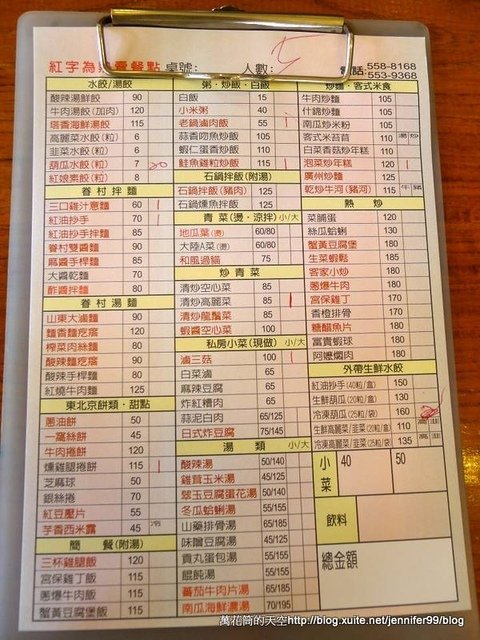 紅字為 餐點 桌號: 人數: 5 電話 558-8168
553-9368
水餃/湯餃
酸辣湯鮮餃 90
牛肉湯餃(加肉) 120
塔香海鮮湯餃 115
高麗菜水餃(粒) 6
韭菜水餃(粒) 6
葫瓜水餃(粒) 7 20
紅娘素餃(粒) 8
眷村拌麵
三口雞汁意麵 60
紅油抄手 70
紅油抄手拌麵 85
眷村雙醬麵 90
麻醬手桿麵 85
大醬乾麵 70
酢醬拌麵 80
眷村湯麵
山東大滷麵 90
麵香麵疙瘩 120
榨菜肉絲麵 80
酸辣麵疙瘩 90
酸辣手桿麵 80
紅燒牛肉麵 125
東北京餅類・甜點
蔥油餅 50
一窩絲餅 45
牛肉捲餅 120
燻雞腿捲餅 115
芝麻球 50
銀絲捲 70
紅豆壓片 55
芋香西米露 45
簡餐(附湯)
三杯雞腿飯 120
宮保雞丁飯 115
蔥爆牛肉飯 115
蟹黃豆腐煲飯 115
粥・炒飯・白飯
白飯 15
小米粥 40
老鍋滷肉飯 55
蒜香吻魚炒飯 105
蝦仁蛋香炒飯 90
鮭魚雞粒炒飯 115
石鍋拌飯(附湯)
石鍋拌飯(豬肉) 125
石鍋燻魚拌飯 125
青菜(燙・涼拌) 小/大
地瓜葉(燙) 60/80
大陸A菜(燙) 60/80
和風過貓 75
炒青菜
清炒空心菜 85
清炒高麗菜 85
清炒龍鬚菜 85
蝦醬空心菜 100
私房小菜(現做) 小/大
滷三菇 100
白菜滷 65
麻辣豆腐 65
炸紅糟肉 65
蒜泥白肉 65/125
日式炸豆腐 75/145
湯類 小/大
酸辣湯 50/140
雞茸玉米湯 45/125
翠玉豆腐蛋花湯 50/140
冬瓜蛤蜊湯 55/155
山藥排骨湯 65/185
味噌豆腐湯 45/125
貢丸蛋包湯 55/155
餛飩湯 55/155
蕃茄牛肉片湯 65/185
南瓜海鮮濃湯 70/195
炒麵・客式米食
牛肉炒麵 105
什錦炒麵 105
南瓜炒米粉 105
客式米苔苜 110 湯 炒
白菜香菇炒年糕 110
泡菜炒年糕 120
廣州炒麵 125
乾炒牛河(豬河) 115 牛 豬
熱炒
菜脯蛋 120
絲瓜蛤蜊 130
蟹黃豆腐煲 180
生菜蝦鬆 185
客家小炒 180
蔥爆牛肉 180
宮保雞丁 170
香橙排骨 170
糖醋魚片 180
富貴蝦球 180
阿嬤燜肉 180
外帶生鮮水餃
紅油抄手(40粒/盒) 150
生鮮葫瓜(20粒/盒) 130
冷凍葫瓜(25粒/袋) 160
生鮮高麗菜/韭菜(20粒/盒) 110 高 韭
冷凍高麗菜/韭菜(25粒/袋) 135 高 韭
小菜 40 50
飲料
總金額
萬花筒的天空http://blog.xuite.net/jennifer99/blog